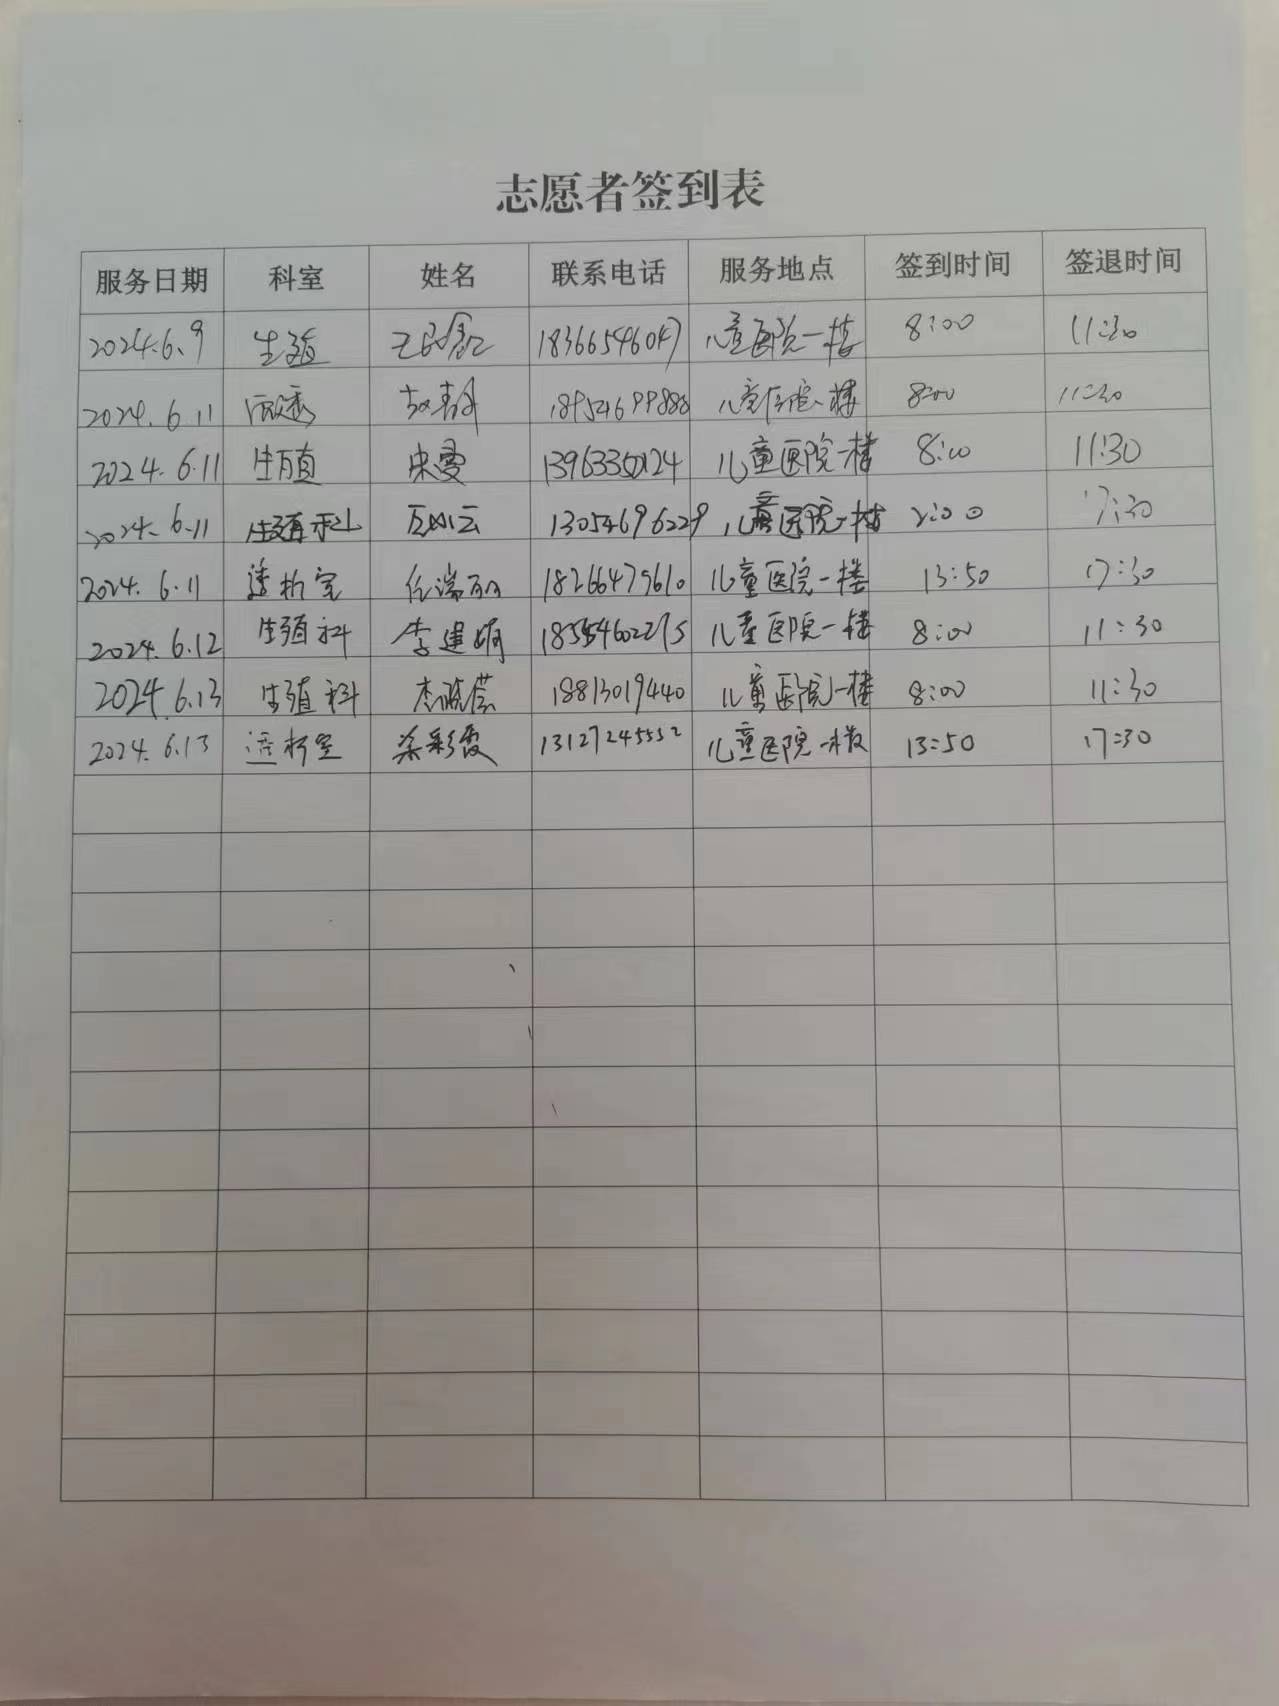 志愿者签到表
服务日期 科室 姓名 联系电话 服务地点 签到时间 签退时间
2024.6.9 生殖 18366546047 儿童医院一楼 8:00 11:30
2024.6.11 儿童医院一楼 8:00 11:30
2024.6.11 生殖 宋雯 儿童医院一楼 8:00 11:30
2024.6.11 生殖科 13054696229 儿童医院一楼 2:00 17:30
2024.6.11 透析室 任瑞丽 18266479610 儿童医院一楼 13:50 17:30
2024.6.12 生殖科 李建娟 18554602275 儿童医院一楼 8:00 11:30
2024.6.13 生殖科 18813019440 儿童医院一楼 8:00 11:30
2024.6.13 透析室 彩霞 13127245552 儿童医院一楼 13:50 17:30